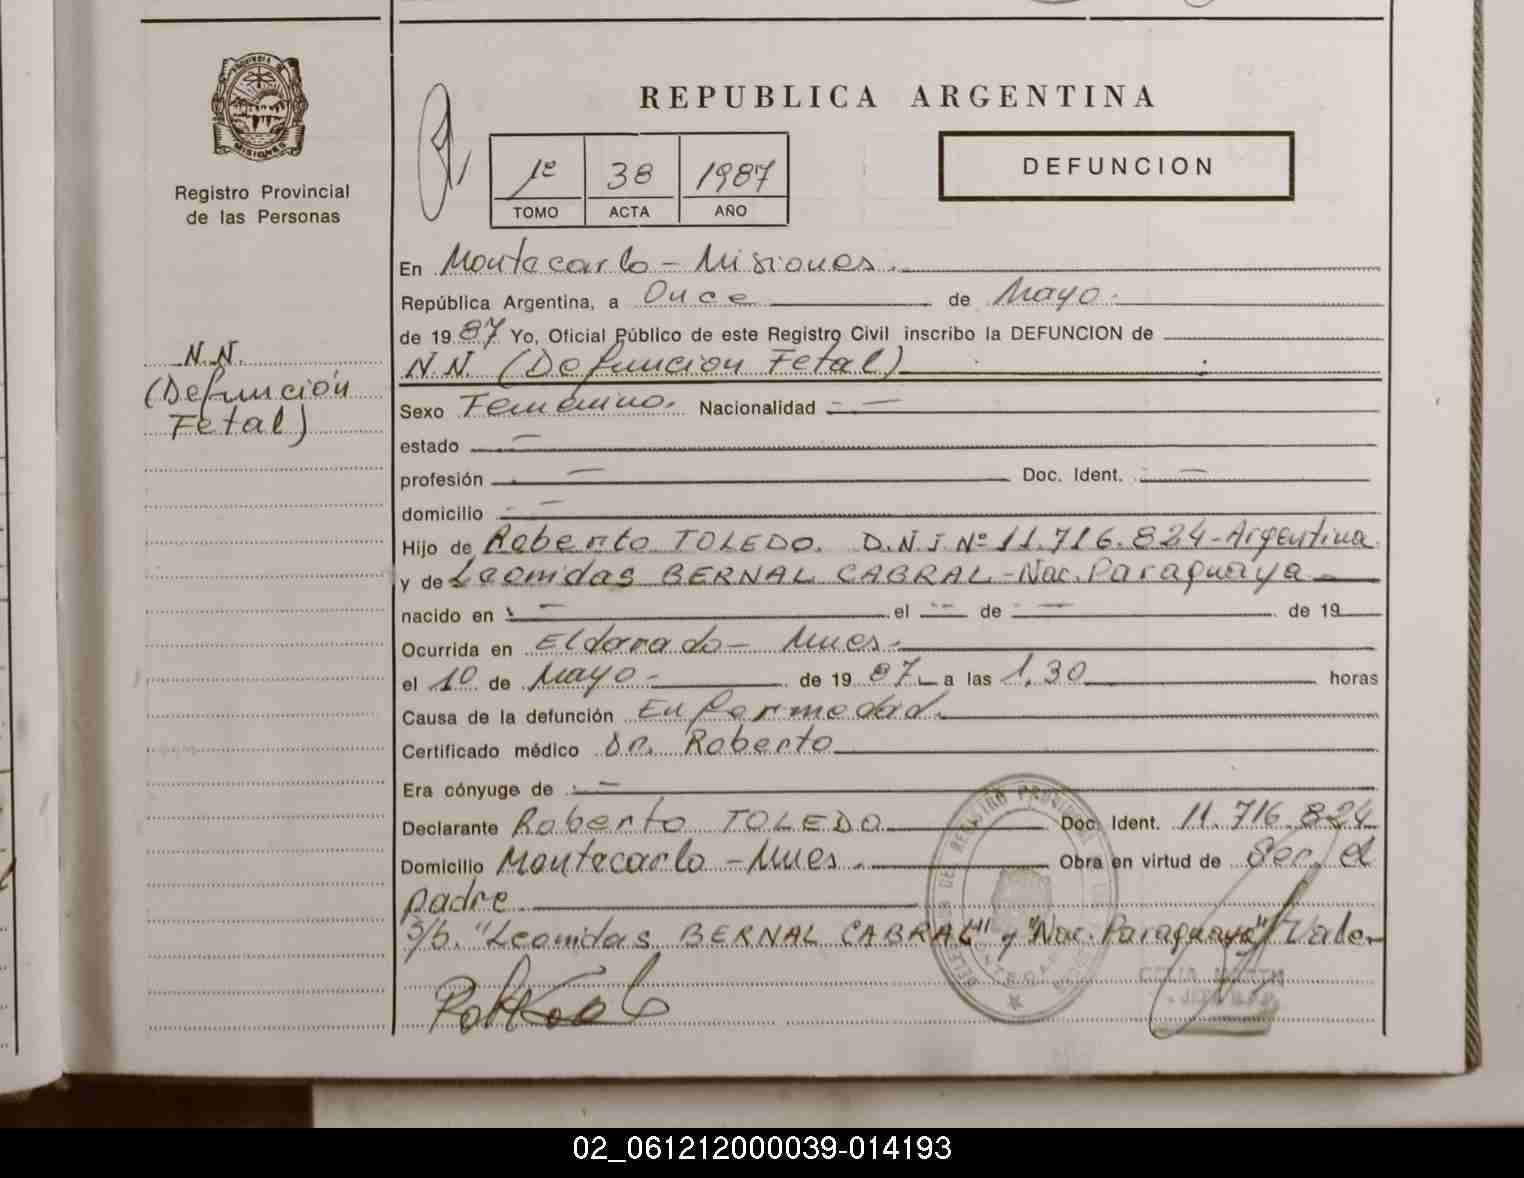 REPUBLICA ARGENTINA
MISIONES
Registro Provincial
de las Personas
1º 38 1987
TOMO ACTA AÑO
DEFUNCION
En Montecarlo - Misiones.
República Argentina, a Once de Mayo.
de 1987 Yo, Oficial Público de este Registro Civil inscribo la DEFUNCION de
N.N. (Defuncion Fetal)
N.N.
(Defunción
Fetal)
Sexo Femenino. Nacionalidad - -
estado -
profesión - Doc. Ident. -
domicilio - -
Hijo de Roberto TOLEDO. D.N.I. Nº 11.716.824-Argentina
y de Leonidas BERNAL CABRAL-Nac. Paraguaya
nacido en - el - de - de 19
Ocurrida en Eldorado - Mnes.
el 10 de Mayo - de 1987 a las 1,30 horas
Causa de la defunción Enfermedad.
Certificado médico Dr. Roberto
Era cónyuge de -
Declarante Roberto TOLEDO Doc. Ident. 11.716.824
Domicilio Montecarlo - Mnes. Obra en virtud de Ser el
padre
S/b. "Leonidas BERNAL CABRAL" y "Nac. Paraguaya" Valen
02_061212000039-014193